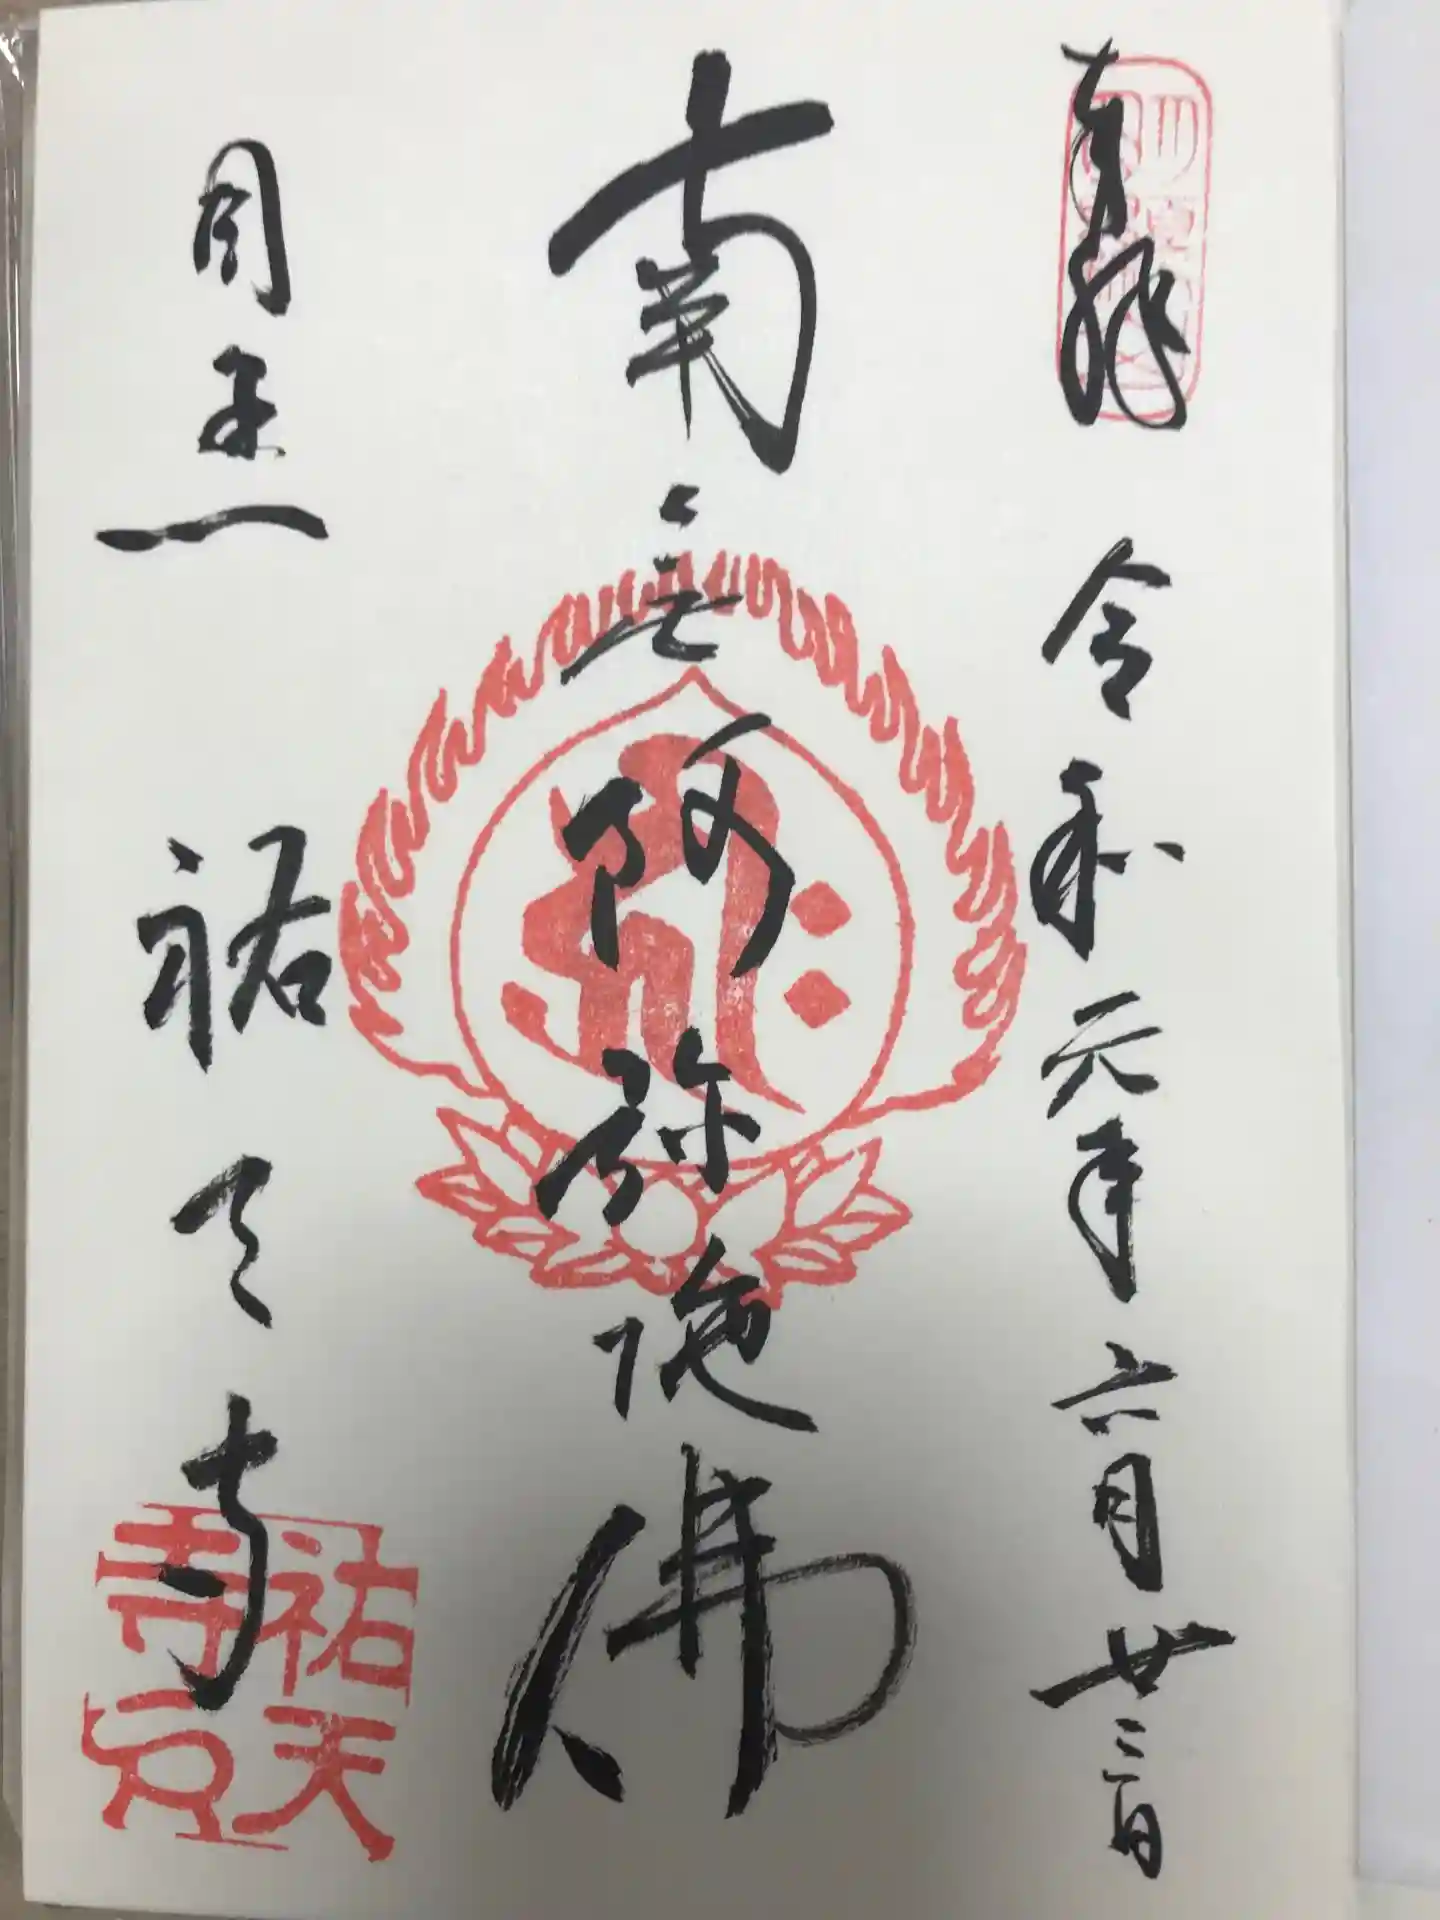 奉拝 令和元年六月廿三日
南無阿弥陀佛
目黒 祐天寺
祐天
寺印